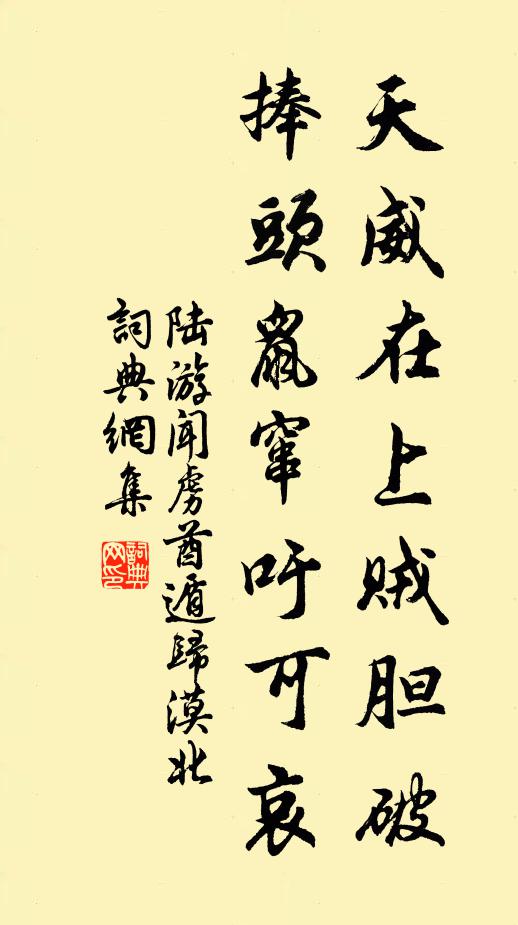 天威在上贼胆破
捧頭鼠窜吁可哀
陆游闻虏酋遁歸漠北
詞典網集
詞典网印